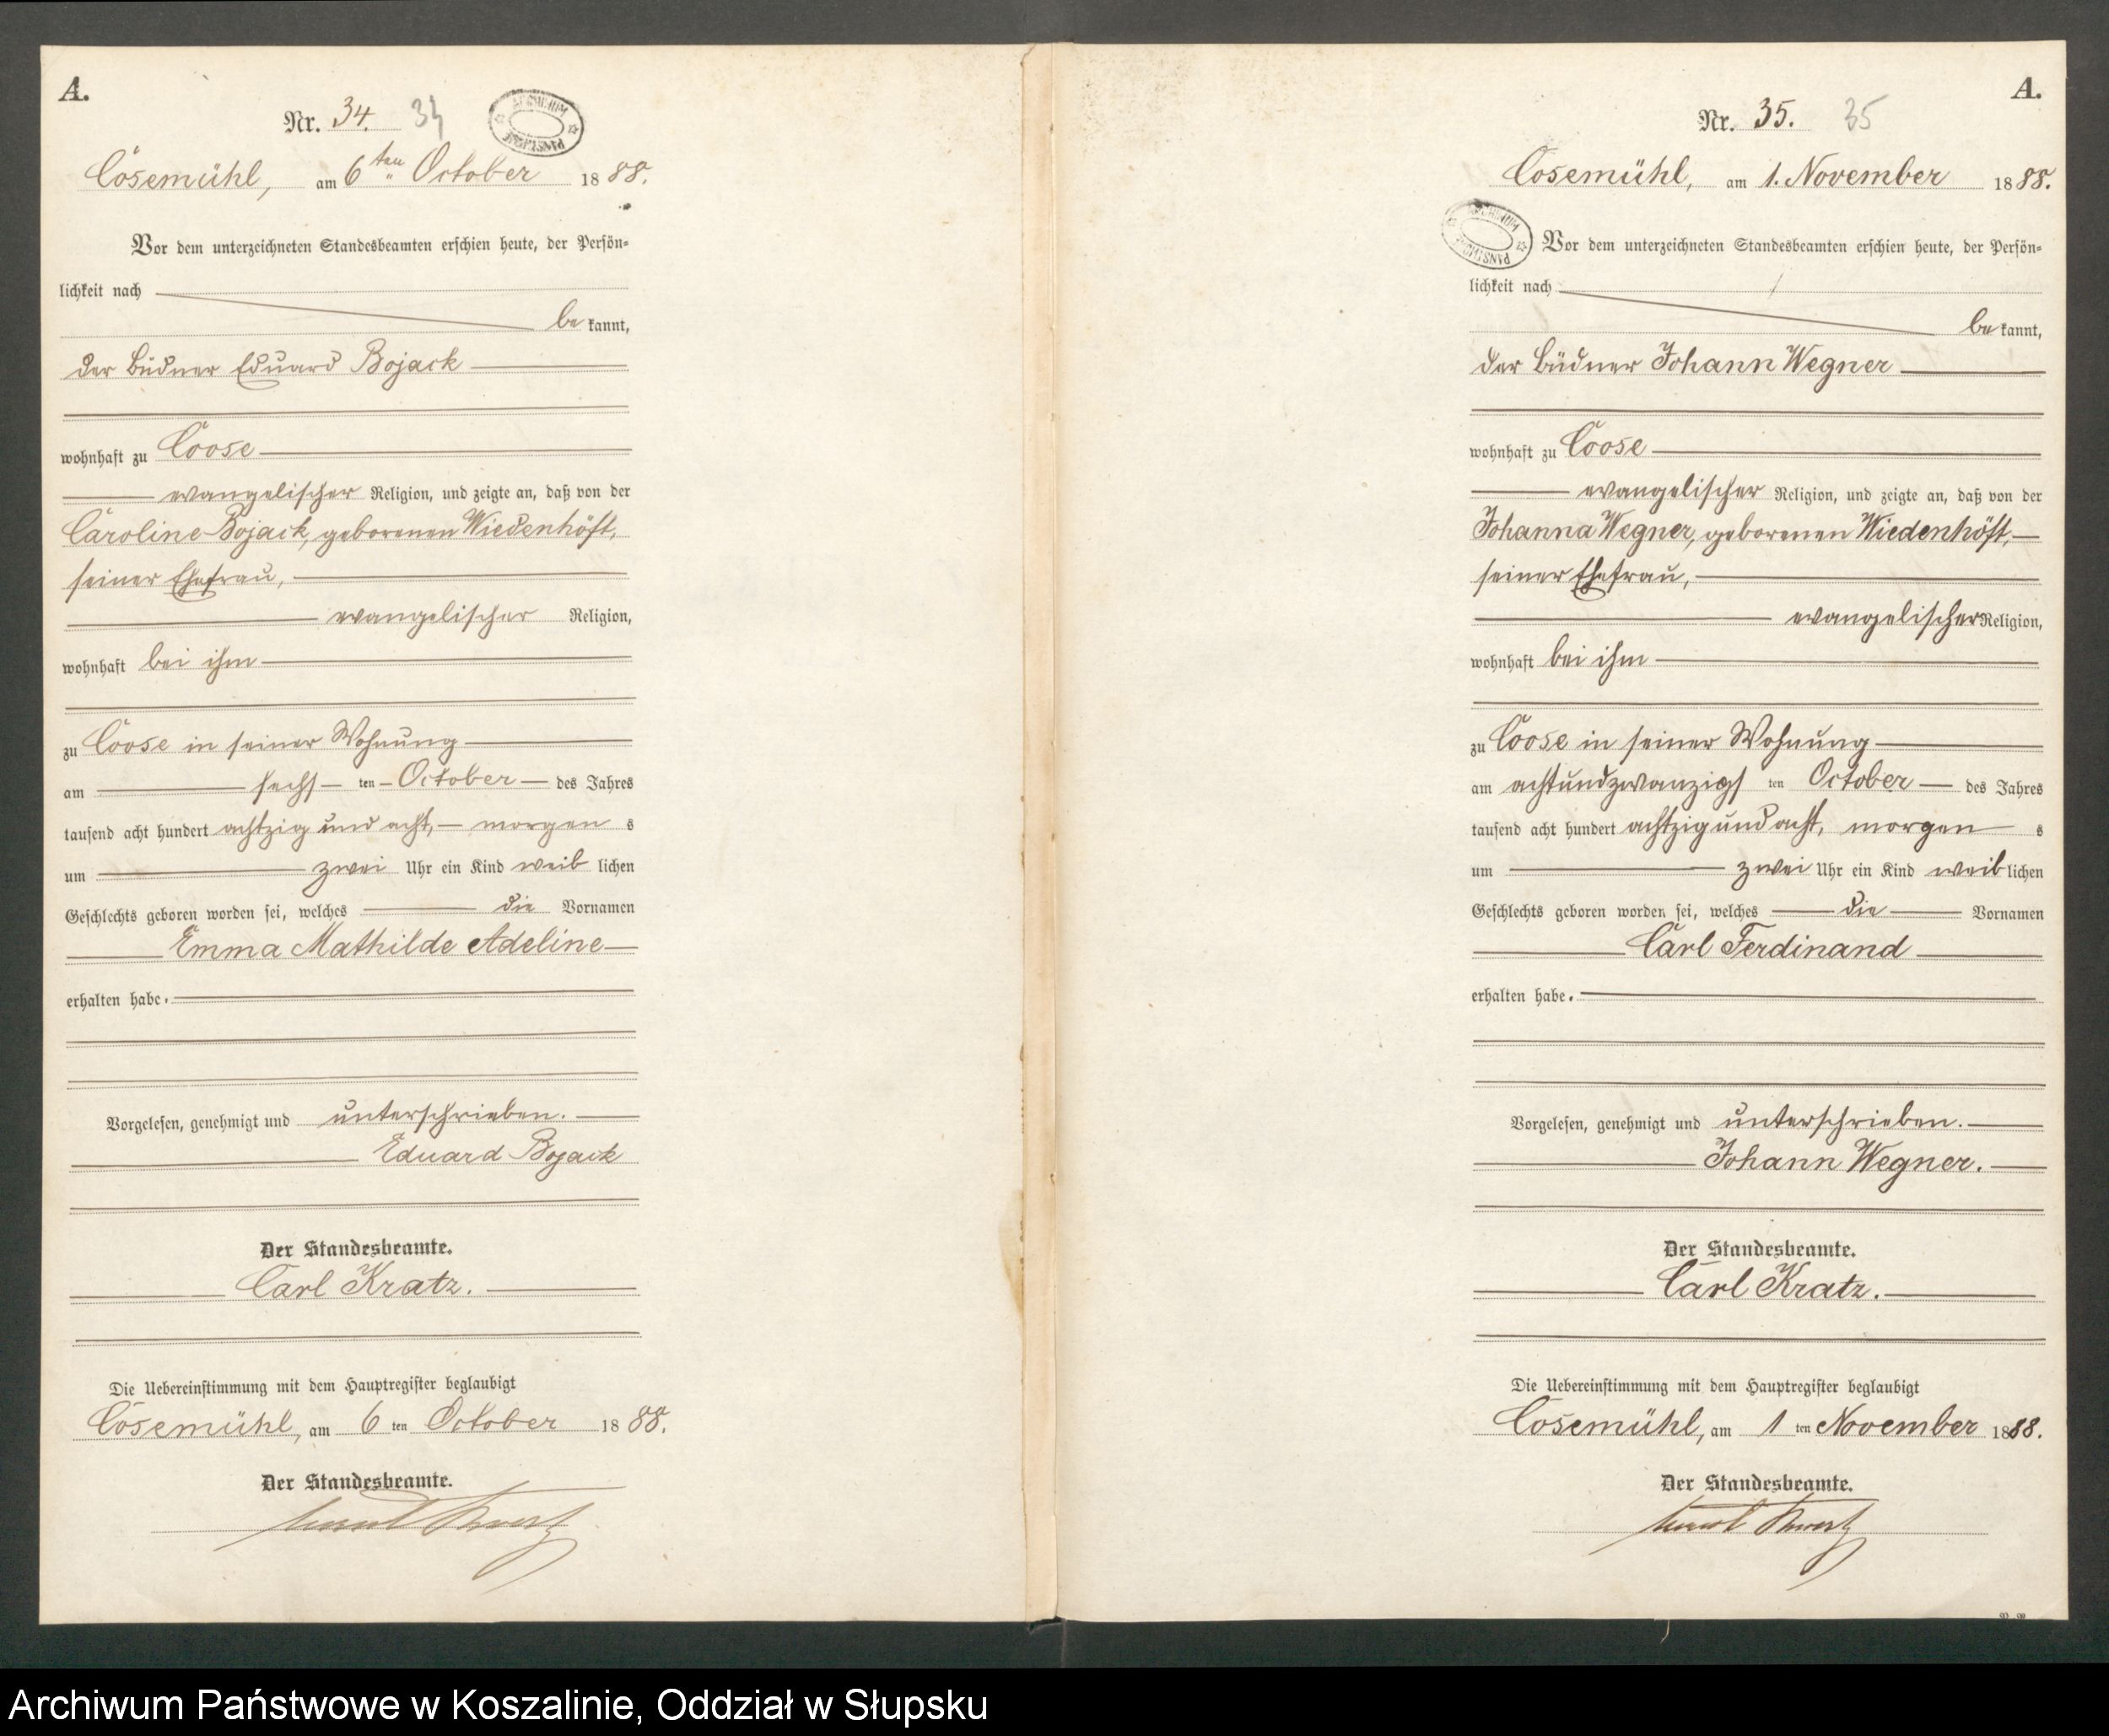 A.
Nr. 34. 34
ARCHIWUM PAŃSTWOWE
Cösemühl, am 6ten October 1888.
Vor dem unterzeichneten Standesbeamten erschien heute, der Persön=
lichkeit nach
be kannt,
der Büdner Eduard Bojack
wohnhaft zu Coose
evangelischer Religion, und zeigte an, daß von der
Caroline Bojack, geborenen Wiedenhöft,
seiner Ehefrau,
evangelischer Religion,
wohnhaft bei ihm
zu Coose in seiner Wohnung
am sechs ten October des Jahres
tausend acht hundert achtzig und acht, morgen s
um zwei Uhr ein Kind weib lichen
Geschlechts geboren worden sei, welches die Vornamen
Emma Mathilde Adeline
erhalten habe.
Vorgelesen, genehmigt und unterschrieben.
Eduard Bojack
Der Standesbeamte.
Carl Kratz.
Die Uebereinstimmung mit dem Hauptregister beglaubigt
Cösemühl, am 6 ten October 1888.
Der Standesbeamte.
A.
Nr. 35. 35
Cosemühl, am 1. November 1888.
ARCHIWUM PAŃSTWOWE
Vor dem unterzeichneten Standesbeamten erschien heute, der Persön=
lichkeit nach
be kannt,
der Büdner Johann Wegner
wohnhaft zu Coose
evangelischer Religion, und zeigte an, daß von der
Johanna Wegner, geborenen Wiedenhöft,
seiner Ehefrau,
evangelischer Religion,
wohnhaft bei ihm
zu Coose in seiner Wohnung
am achtundzwanzigs ten October des Jahres
tausend acht hundert achtzig und acht, morgen s
um zwei Uhr ein Kind weib lichen
Geschlechts geboren worden sei, welches die Vornamen
Carl Ferdinand
erhalten habe.
Vorgelesen, genehmigt und unterschrieben.
Johann Wegner.
Der Standesbeamte.
Carl Kratz.
Die Uebereinstimmung mit dem Hauptregister beglaubigt
Cosemühl, am 1 ten November 1888.
Der Standesbeamte.
Archiwum Państwowe w Koszalinie, Oddział w Słupsku